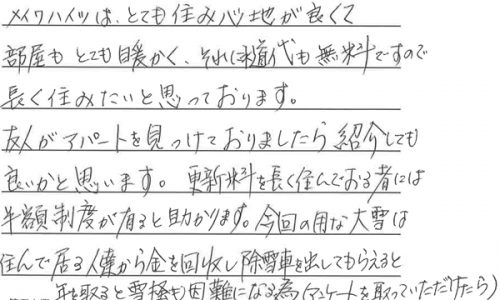 メイワハイツは、とても住み心地が良くて
部屋もとても暖かく、それに水道代も無料ですので
長く住みたいと思っております。
友人がアパートを見つけておりましたら紹介しても
良いかと思います。更新料を長く住んでおる者には
半額制度が有ると助かります。今回の用な大雪は
住んで居る人達から金を回収し除雪車を出してもらえると
年を取ると雪掻も困難になる為(アンケートを取っていただけたら)